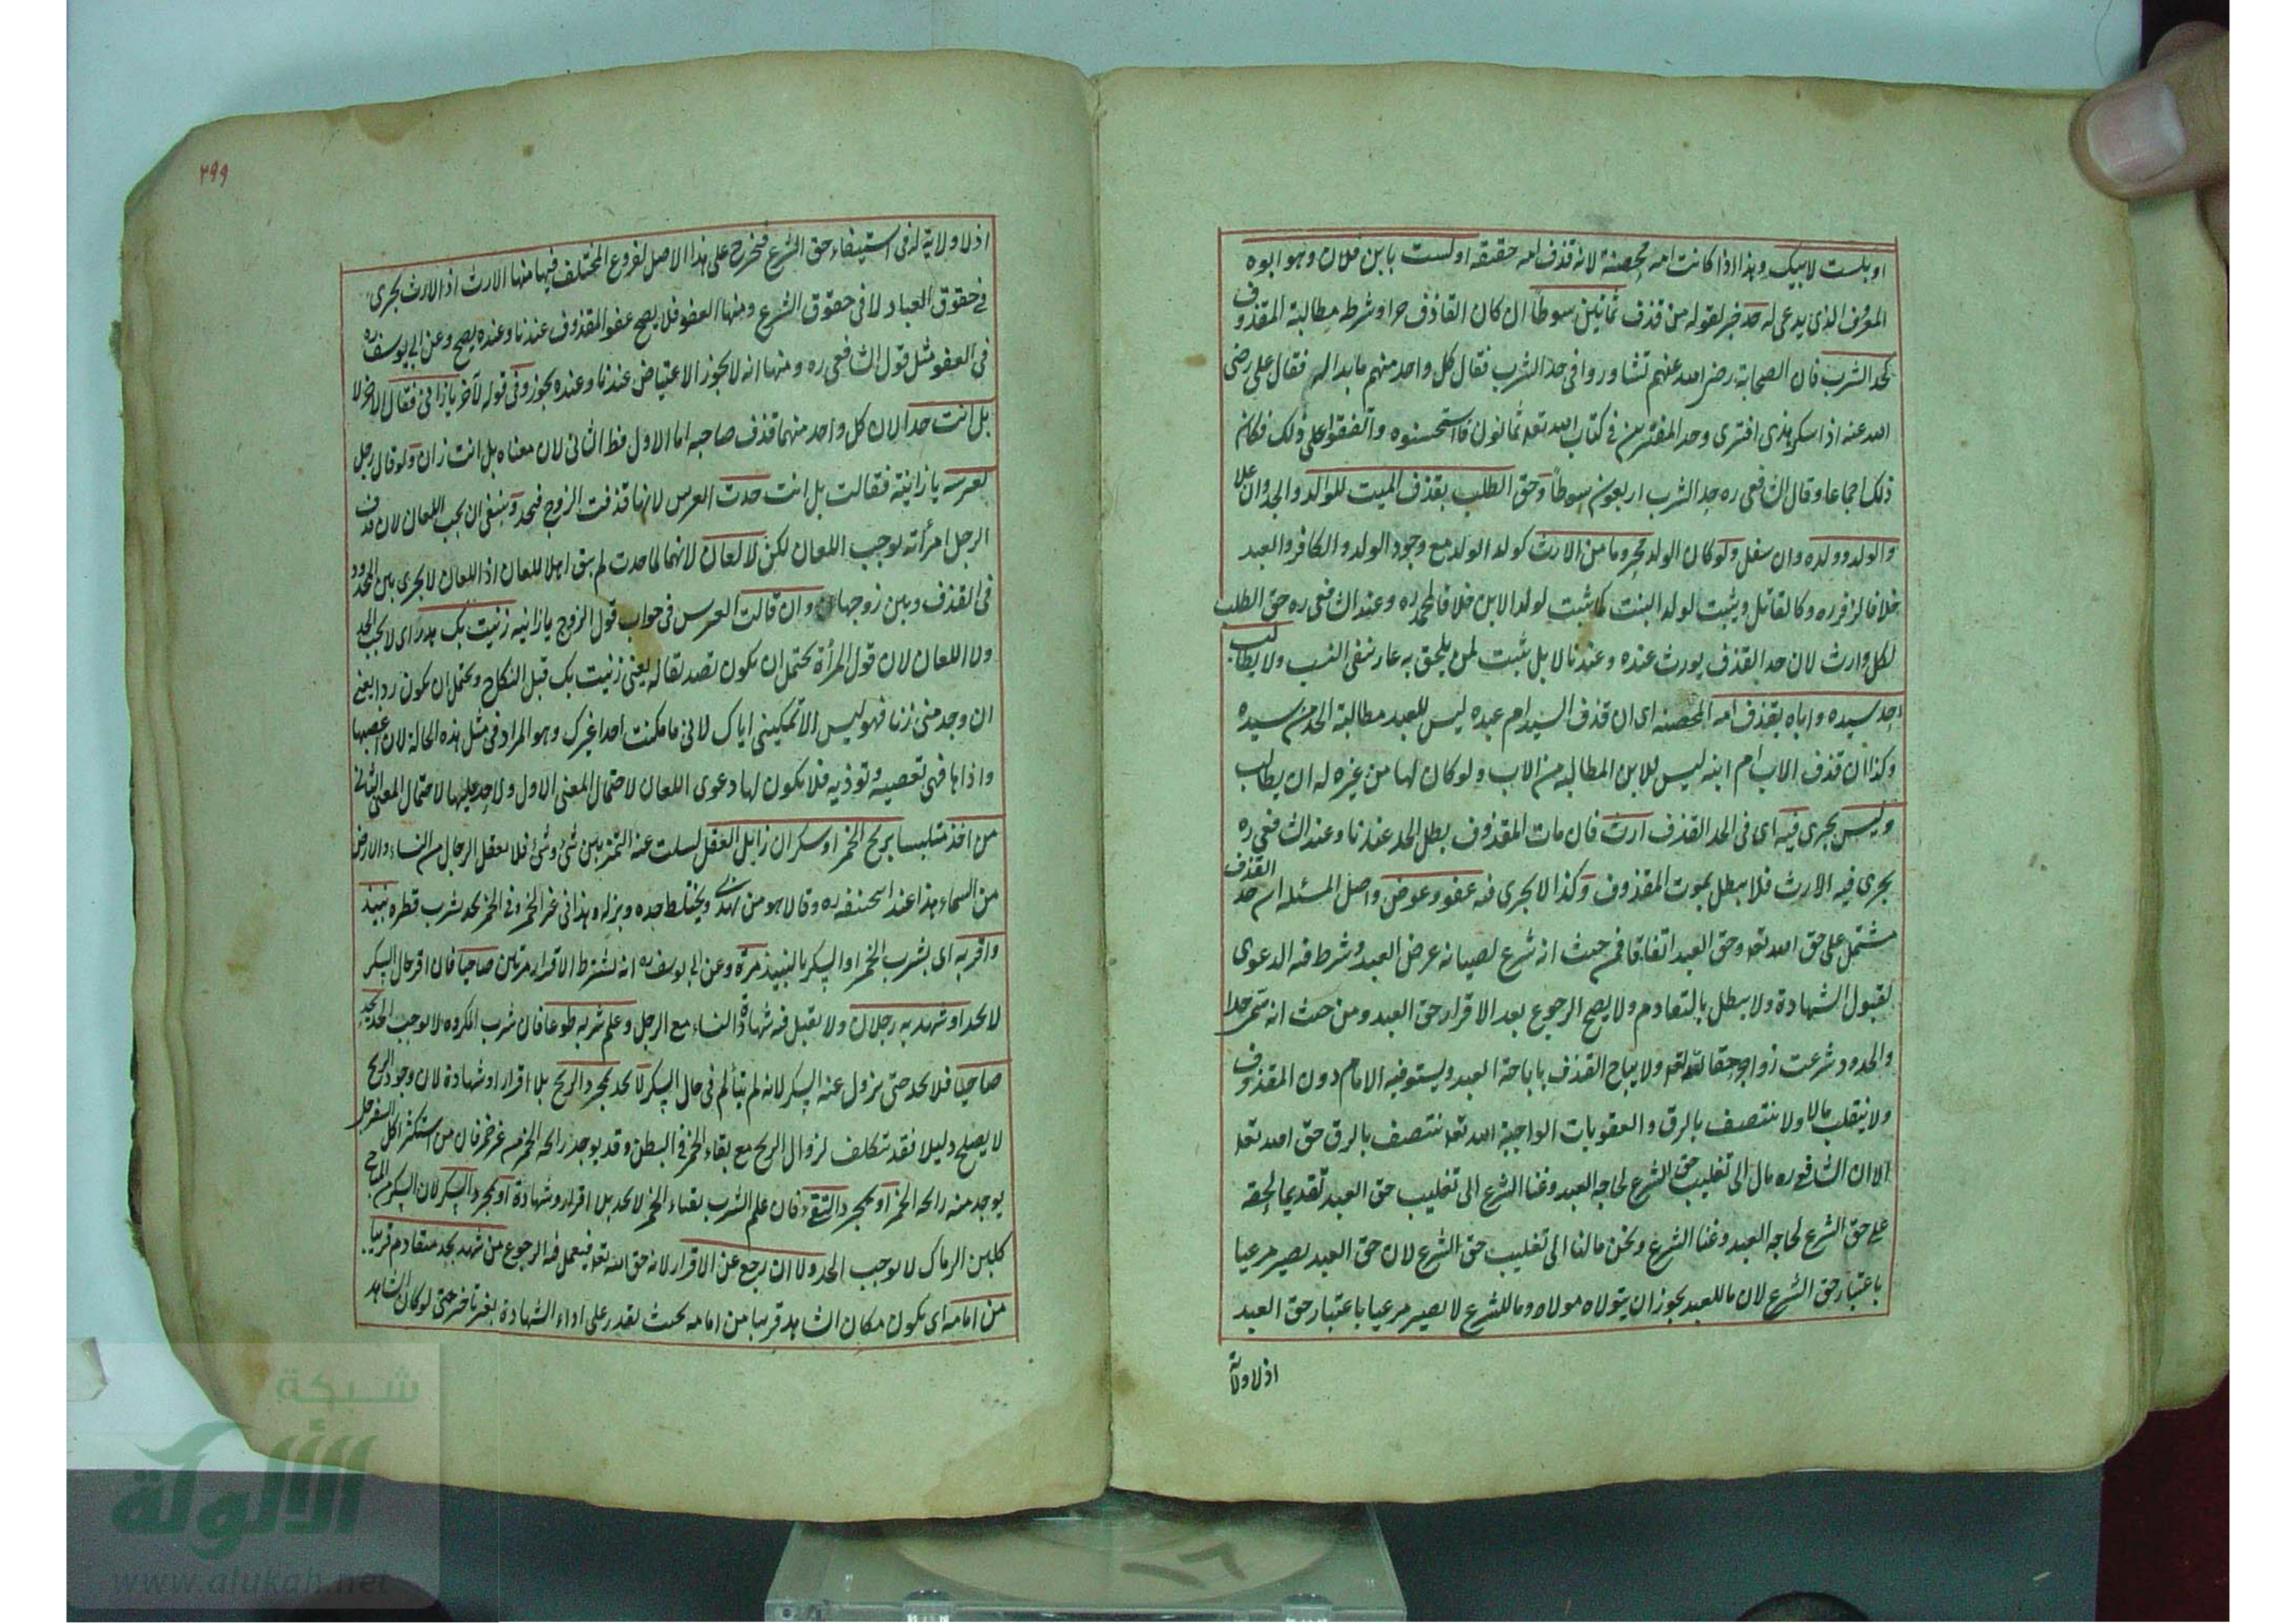 او بلست لابيك وهذا اذا كانت امه محصنة لانه قذف امه حقيقة او لست بابن فلان وهو ابوه
المعروف الذي يدعى له حد خبر لقوله من قذف ثمانين سوطاً ان كان القاذف حرا وشرط مطالبة المقذوف
كحد الشرب فان الصحابة رضي الله عنهم تشاوروا في حد الشرب فقال كل واحد منهم ما بدا له فقال علي رضي
الله عنه اذا سكر هذى افترى وحد المفترين في كتاب الله تعه ثمانون فاستحسنوه واتفقوا على ذلك فكان
ذلك اجماعا وقال الشافعي ره حد الشرب اربعون سوطاً وحق الطلب بقذف الميت للوالد والجد وان علا
والولد وولده وان سفل ولو كان الولد محروما من الارث كولد الولد مع وجود الولد والكافر والعبد
خلافا لزفر ره وكالقاتل ويثبت لولد البنت كما يثبت لولد الابن خلافا لمحمد ره وعند الشافعي ره حق الطلب
لكل وارث لان حد القذف يورث عنده وعندنا لا بل يثبت لمن يلحق به عار نفى النسب ولا يطالب
احد سيده واباه بقذف امه المحصنه اى ان قذف السيد ام عبده ليس للعبد مطالبة الحد من سيده
وكذا ان قذف الاب ام ابنه ليس للابن المطالبه من الاب ولو كان لها من غيره له ان يطالب
وليس يجرى فيه اى فى الحد القذف ارث فان مات المقذوف بطل الحد عندنا وعند الشافعي ره
يجرى فيه الارث فلا يبطل بموت المقذوف وكذا لا يجرى فيه عفو وعوض واصل المسئله ان حد القذف
مشتمل على حق الله تعه وحق العبد اتفاقا فمن حيث انه شرع لصيانه عرض العبد وشرط فيه الدعوى
لقبول الشهادة ولا يبطل بالتقادم ولا يصح الرجوع بعد الاقرار حق العبد ومن حيث انه سمى حدا
والحدود شرعت زواجر حقا لله تعه ولا يباح القذف باباحة العبد ويستوفيه الامام دون المقذوف
ولا ينقلب مالا ولا ينتصف بالرق والعقوبات الواجبة الله تعه تنتصف بالرق حق الله تعه
الا ان الشافعي ره مال الى تغليب حق الشرع لحاجه العبد وغنا الشرع الى تغليب حق العبد تقديما لحقه
على حق الشرع لحاجه العبد وغنا الشرع ونحن مالنا الى تغليب حق الشرع لان حق العبد يصير مرعيا
باعتبار حق الشرع لان ما للعبد يجوز ان يتولاه مولاه وما للشرع لا يصير مرعيا باعتبار حق العبد
اذ لا ولاية
٢٩٩
اذ لا ولاية له فى استيفاء حق الشرع فيخرج على هذا الاصل الفروع المختلف فيها منها الارث اذ الارث يجرى
فى حقوق العباد لا فى حقوق الشرع ومنها العفو فلا يصح عفو المقذوف عندنا وعنده يصح وعن ابى يوسف ره
فى العفو مثل قول الشافعى ره ومنها انه لا يجوز الاعتياض عندنا وعنده يجوز وفى قوله لآخر يا زانى فقال الاخر لا
بل انت حدا لان كل واحد منهما قذف صاحبه اما الاول فظ الثانى لان معناه بل انت زان ولو قال رجل
لعرسه يا زانية فقالت بل انت حدت العرس لانها قذفت الزوج فتحد وينبغى ان يجب اللعان لان قذف
الرجل امرأته يوجب اللعان لكن لا لعان لانهما لما حدت لم يبق اهلا للعان اذ اللعان لا يجرى بين المحدود
فى القذف وبين زوجها وان قالت العرس فى جواب قول الزوج يا زانيه زنيت بك هدر اى لا يجب الحد
ولا اللعان لان قول المرأة يحتمل ان يكون تصديقا له يعنى زنيت بك قبل النكاح ويحتمل ان يكون ردا يعنى
ان وجد منى زنا فهو ليس الا تمكينى اياك لانى ما مكنت احدا غيرك وهو المراد فى مثل هذه الحالة لان اغضبها
واذاها فهى تغضبه وتوذيه فلا يكون لها دعوى اللعان لاحتمال المعنى الاول ولا حد عليها لاحتمال المعنى الثانى
من اخذ متلبسا بريح الخمر او سكران زايل العقل لسلب عنه التمييز بين شئ وشئ فلا يعقل الرجال من النساء والارض
من السماء هذا عند ابى حنيفه ره وقالا هو من يهذى ويختلط جده وهزله وهذا فى غير الخمر وفى الخمر يحد بشرب قطره نبيذ
واقر به اى بشرب الخمر او السكر بالنبيذ مرة وعن ابى يوسف ره انه يشترط الاقرار مرتين صاحيا فان اقر حال السكر
لا يحد او شهد به رجلان ولا يقبل فيه شهادة النساء مع الرجل وعلم شربه طوعا فان شرب المكروه لا يوجب الحد يحد
صاحيا فلا يحد حتى يزول عنه السكر لانه لم يتألم فى حال السكر لا يحد بمجرد الريح بلا اقرار او شهادة لان وجود الريح
لا يصلح دليلا فقد تتكلف لزوال الريح مع بقاء الخمر فى البطن وقد يوجد رائحه الخمر من غير خمر فان من استكثر اكل السفرجل
يوجد منه رائحه الخمر او بمجرد التقئ فان علم الشرب بقاء الخمر لا يحد بلا اقرار وشهادة او بمجرد السكر لان السكر من المباح
كلبن الرماك لا يوجب الحد ولا ان رجع عن الاقرار لانه حق الله تعه فيعمل فيه الرجوع من شهد بحد متقادم قريبا
من امامه اى يكون مكان الشاهد قريبا من امامه بحيث يقدر على اداء الشهادة بغير تاخير حتى لو كان الشاهد
شبكة
الألوكة
www.alukah.net